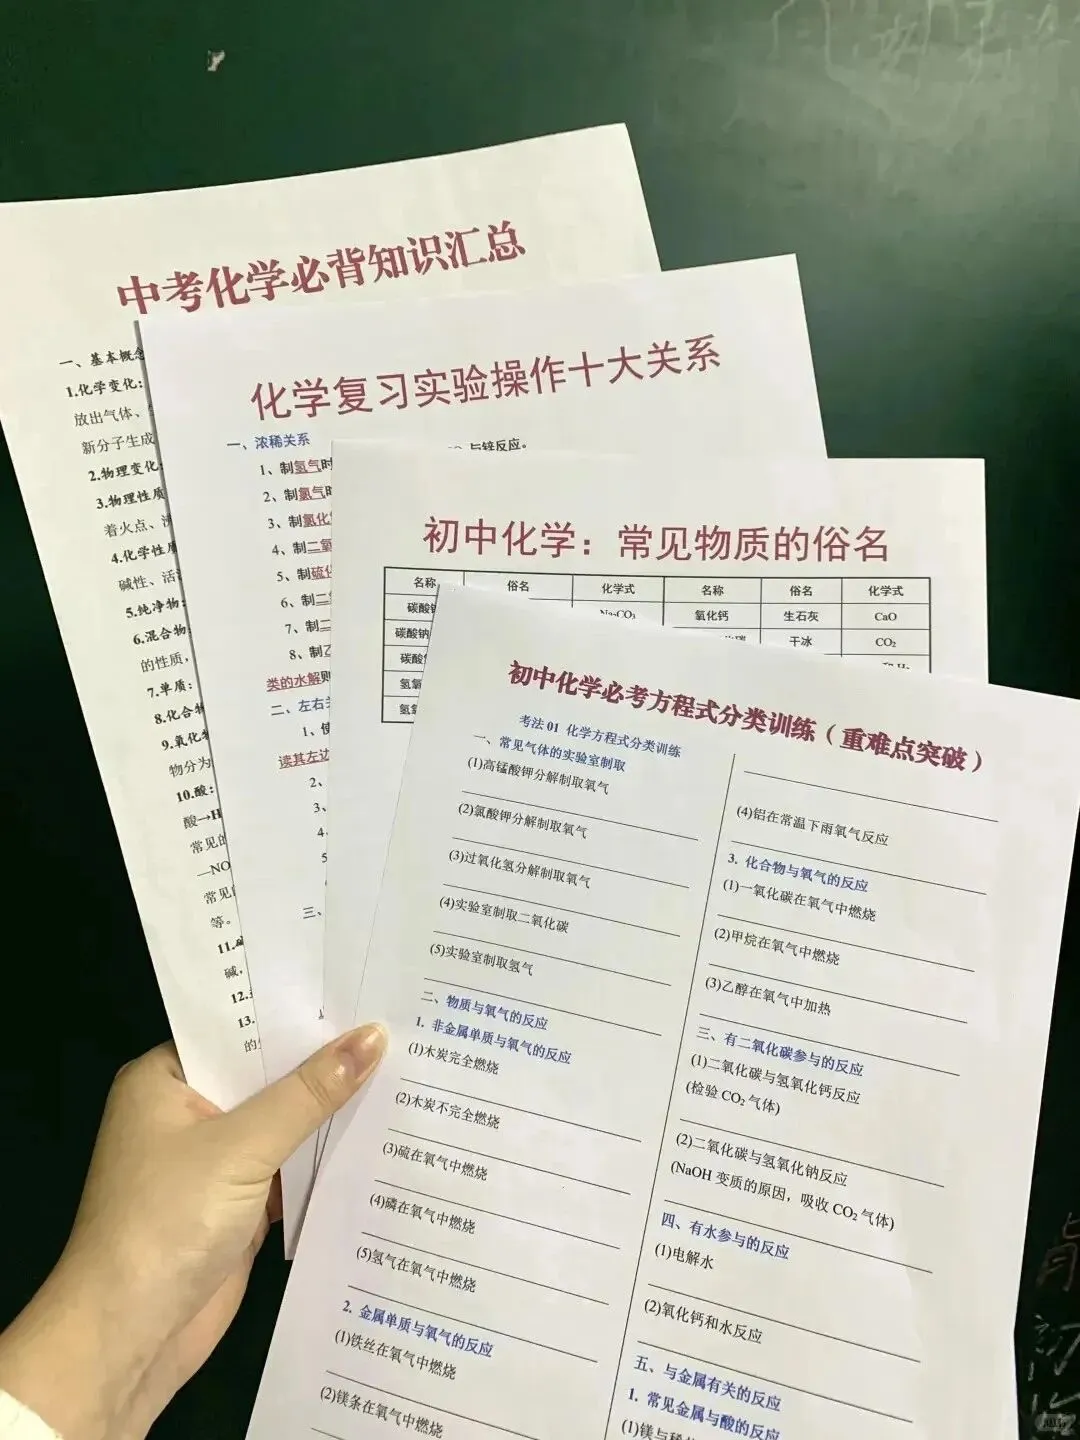 中考化学必背知识汇总
一、基本概念
1.化学变化：
放出气体、
新分子生成
2.物理变化：
3.物理性质
着火点、
4.化学性质
碱性、活
5.纯净物：
6.混合物
的性质，
7.单质：
8.化合物
9.氧化物
物分为
10.酸：
酸→H
常见的
—NO
常见
等。
11.
碱，
12.
13.
的
化学复习实验操作十大关系
一、浓稀关系
与锌反应。
1、制氢气时
2、制氯气时
3、制氯化
4、制二氧
5、制硫化
6、制二
7、制二
8、制乙
类的水解则
二、左右关
1、使
读其左边
2、
3、
4、
5
三、
初中化学：常见物质的俗名
名称 俗名 化学式 名称 俗名 化学式
碳酸钠 Na₂CO₃ 氧化钙 生石灰 CaO
碳酸钠 干冰 CO₂
碳酸
氢氧
氢氧
初中化学必考方程式分类训练（重难点突破）
考法 01 化学方程式分类训练
一、常见气体的实验室制取
(1)高锰酸钾分解制取氧气
(2)氯酸钾分解制取氧气
(3)过氧化氢分解制取氧气
(4)实验室制取二氧化碳
(5)实验室制取氢气
二、物质与氧气的反应
1. 非金属单质与氧气的反应
(1)木炭完全燃烧
(2)木炭不完全燃烧
(3)硫在氧气中燃烧
(4)磷在氧气中燃烧
(5)氢气在氧气中燃烧
2. 金属单质与氧气的反应
(1)铁丝在氧气中燃烧
(2)镁条在氧气中燃烧
(4)铝在常温下雨氧气反应
3. 化合物与氧气的反应
(1)一氧化碳在氧气中燃烧
(2)甲烷在氧气中燃烧
(3)乙醇在氧气中加热
三、有二氧化碳参与的反应
(1)二氧化碳与氢氧化钙反应
(检验 CO₂ 气体)
(2)二氧化碳与氢氧化钠反应
(NaOH 变质的原因，吸收 CO₂ 气体)
四、有水参与的反应
(1)电解水
(2)氧化钙和水反应
五、与金属有关的反应
1. 常见金属与酸的反应
(1)镁与稀